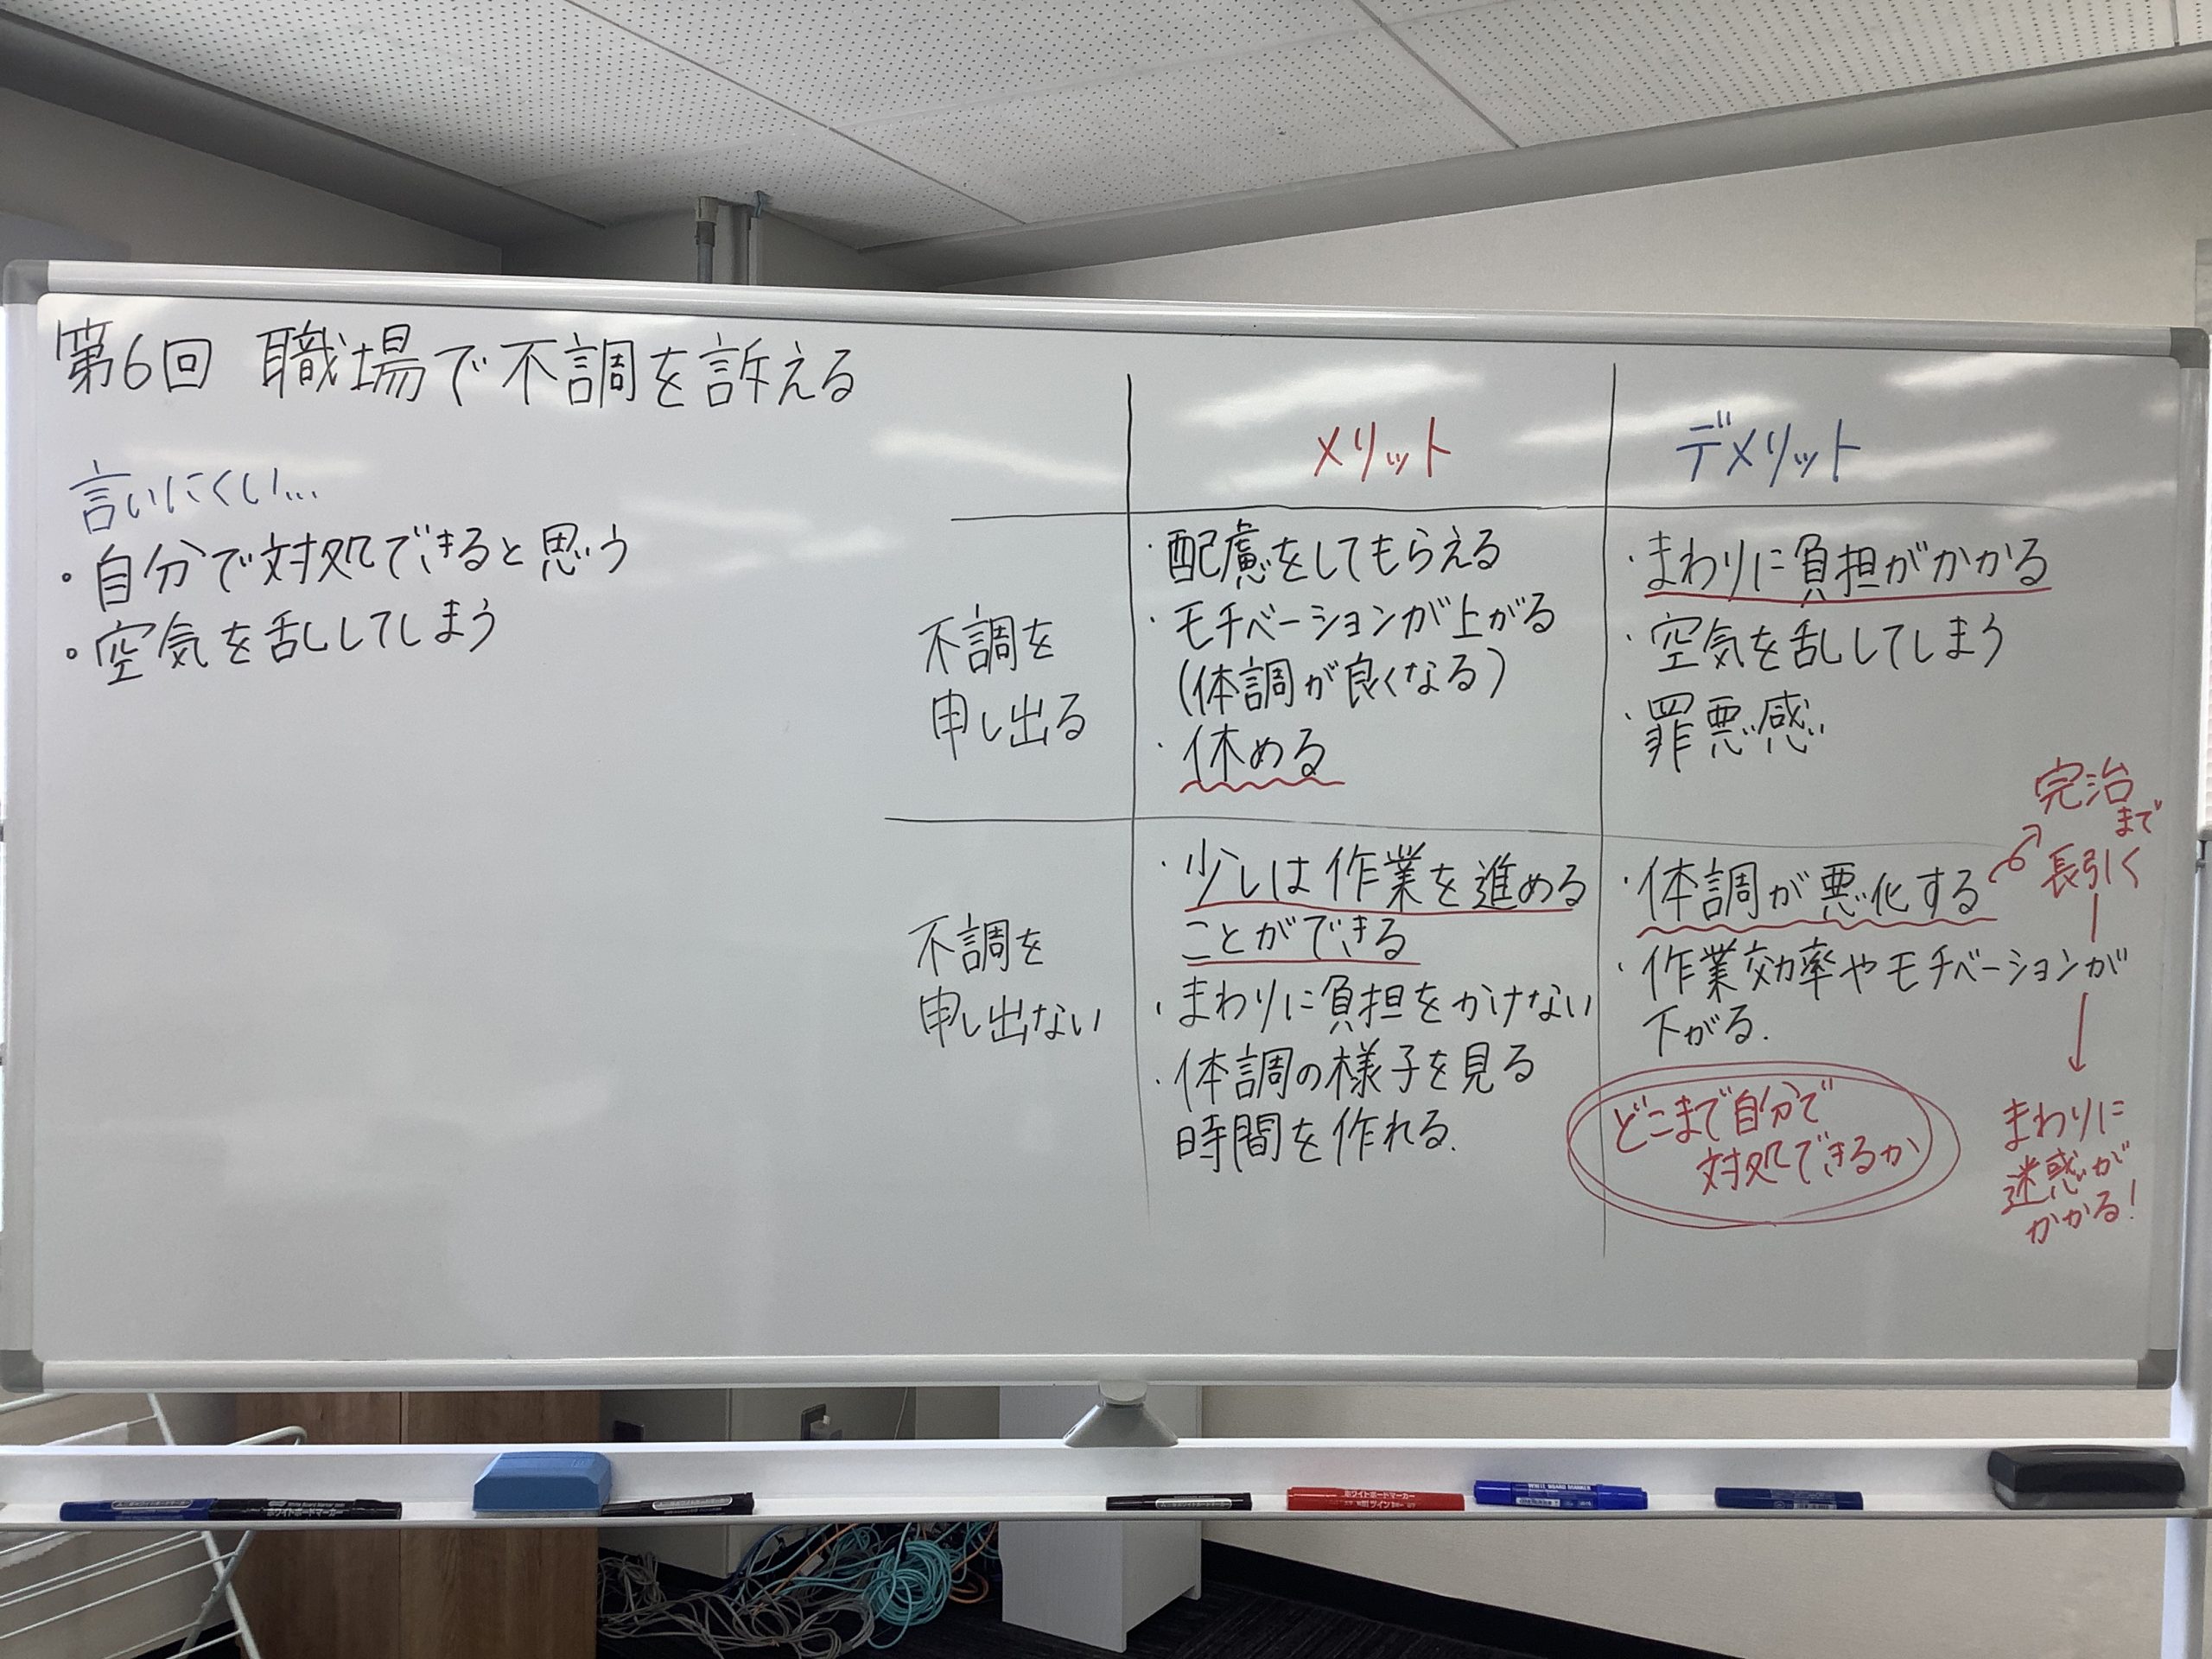 第6回 職場で不調を訴える
言いにくい...
・自分で対処できると思う
・空気を乱ししてしまう
メリット
デメリット
不調を
申し出る
・配慮をしてもらえる
・モチベーションが上がる
(体調が良くなる)
・休める
・まわりに負担がかかる
・空気を乱ししてしまう
・罪悪感
不調を
申し出ない
・少しは作業を進める
ことができる
・まわりに負担をかけない
・体調の様子を見る
時間を作れる.
・体調が悪化する
・作業効率やモチベーションが
下がる.
完治
まで
長引く
まわりに
迷惑が
かかる!
どこまで自分で
対処できるか
ホワイトボードマーカー
White Board Marker
ホワイトボードマーカー
ホワイトボードマーカー
WHITE BOARD MARKER